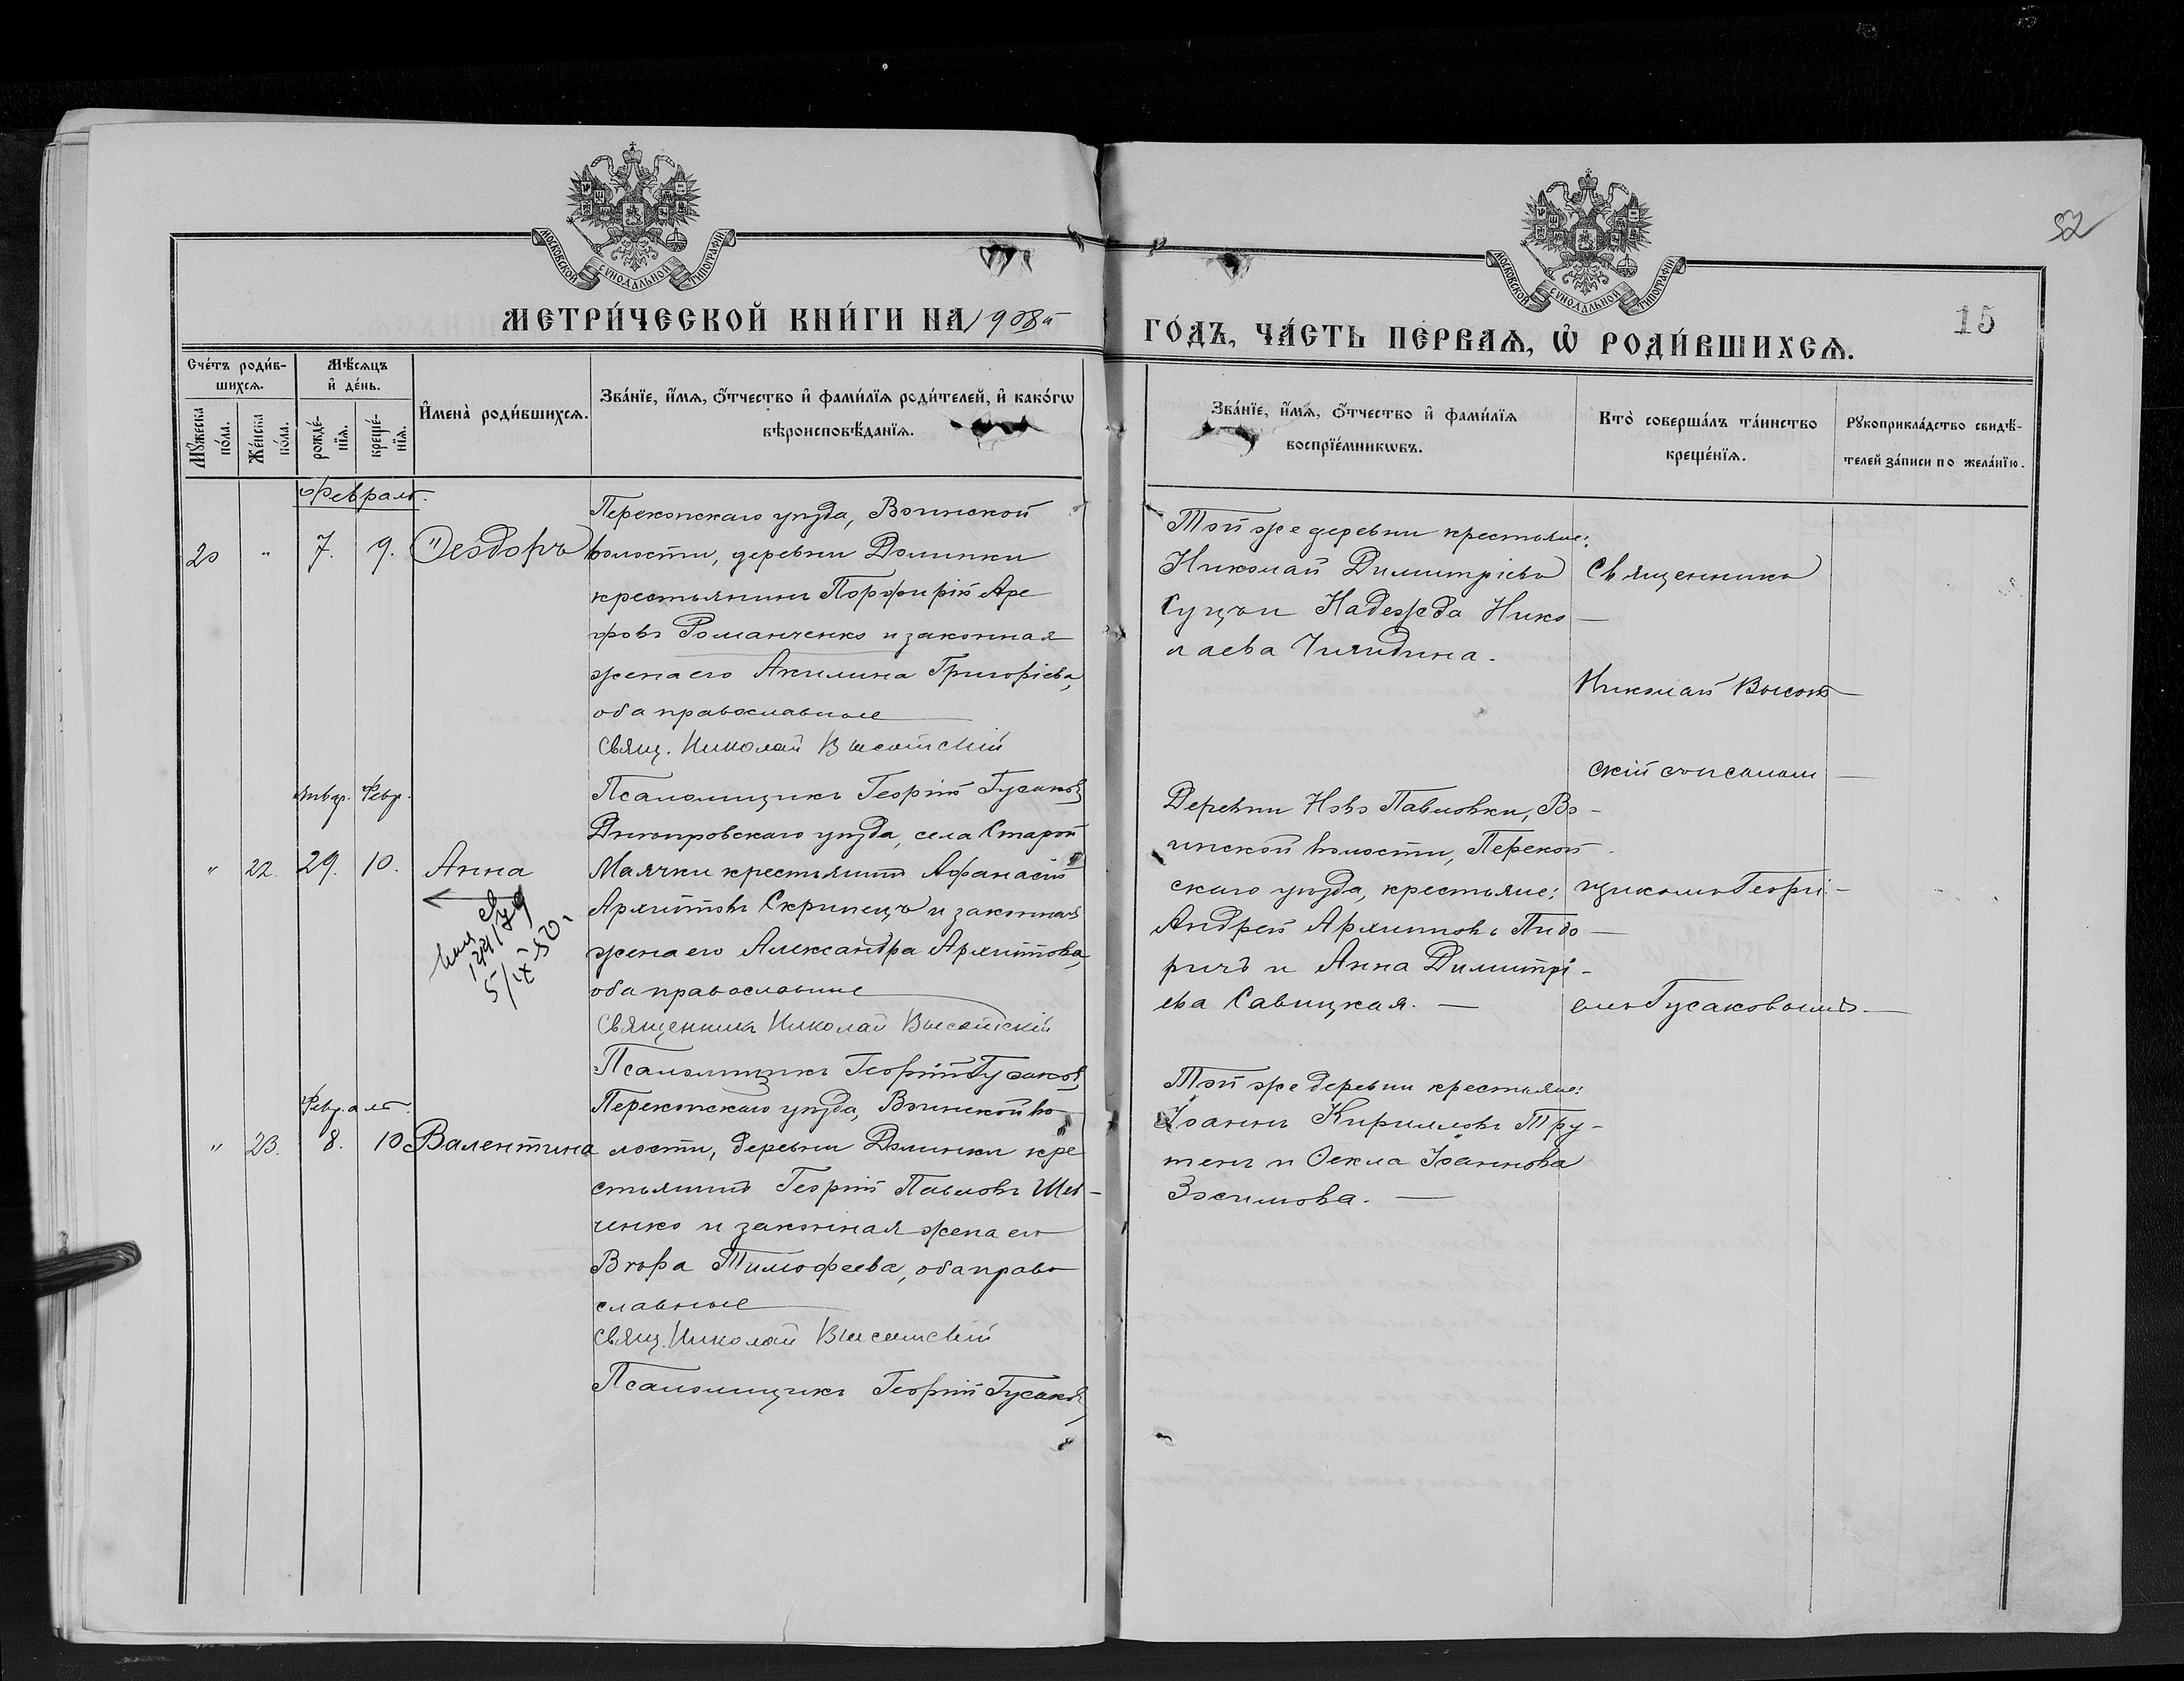 52
15
МОСКОВСКОЙ СѴНОДАЛЬНОЙ ТИПОГРАФІИ
МОСКОВСКОЙ СѴНОДАЛЬНОЙ ТИПОГРАФІИ
МЕТРИ́ЧЕСКОЙ КНИ́ГИ НА 1908й
ГО́ДЪ, ЧА́СТЬ ПЕ́РВАѦ, Ѡ РОДИ́ВШИХСѦ.
Сче́тъ роди́в-
шихсѧ.
Мꙋжеска по́ла.
Же́нска по́ла.
Мѣ́сѧцъ
и҆ де́нь.
рожде́-
нїѧ.
креще́-
нїѧ.
И҆мена̀ роди́вшихсѧ.
Зва́нїе, и҆́мѧ, ѻ҆́тчество и҆ фами́лїѧ роди́телей, и҆ како́гѡ
вѣроисповѣ́данїѧ.
Зва́нїе, и҆́мѧ, ѻ҆́тчество и҆ фами́лїѧ
воспрїе́мникѡвъ.
Кто̀ соверша́лъ та́инство
креще́нїѧ.
Рꙋкоприкла́дство свидѣ́-
телей за́писи по жела́нїю.
Февраль.
20 " 7. 9. Ѳеодоръ
Перекопскаго уѣзда, Воинской
волости, деревни Долинки
крестьянинъ Порфирій Аре
фовъ Романченко и законная
жена его Акилина Григоріева,
оба православные
Свящ. Николай Высотскій
Псаломщикъ Георгій Гусаковъ
Той же деревни крестьяне:
Николай Димитріевъ
Надежда Нико
лаева
Январ. Февр.
" 22. 29. 10. Анна
Днѣпровскаго уѣзда, села Старой
Маячки крестьянинъ Афанасій
Архиповъ Скрипецъ и законная
жена его Александра Архипова,
оба православные
Священникъ Николай Высотскій
Псаломщикъ Георгій Гусаковъ
5/IX-50
Деревни Ново Павловки, Во-
инской волости, Перекоп-
скаго уѣзда, крестьяне:
Андрей Архиповъ Пидо-
ричъ и Анна Димитрі-
ева Савицкая.
Священникъ
Николай Высот-
скій съ псалом-
щикомъ Георгі-
емъ Гусаковымъ.
Февраль.
" 23. 8. 10 Валентина
Перекопскаго уѣзда, Воинской во-
лости, деревни Долинки кре
стьянинъ Георгій Павловъ Шев-
ченко и законная жена его
Вѣра Тимофеева, оба право
славные
Свящ. Николай Высотскій
Псаломщикъ Георгій Гусаковъ
Той же деревни крестьяне:
Іоаннъ Кирилловъ Тру-
тень и Ѳекла Іоаннова
Зосимова.